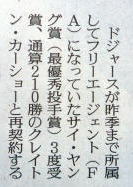 ドジャースが昨季まで所属
してフリーエージェント（Ｆ
Ａ）になっていたサイ・ヤン
グ賞（最優秀投手賞）３度受
賞、通算２１０勝のクレイト
ン・カーショーと再契約する